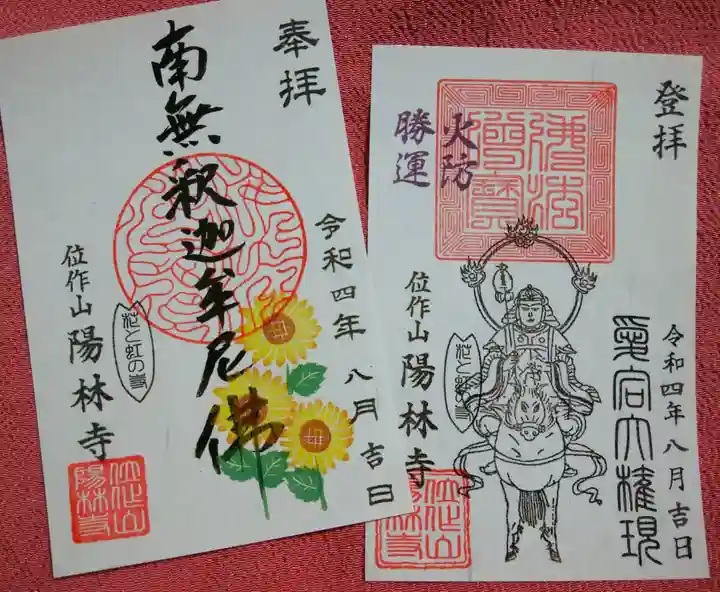 奉拝
南無釈迦牟尼佛
令和四年八月吉日
位作山
陽林寺
花と虹の寺
位作山
陽林寺
登拝
火防
勝運
佛法僧寳
愛宕大権現
令和四年八月吉日
位作山
陽林寺
花と虹
位作山
陽林寺